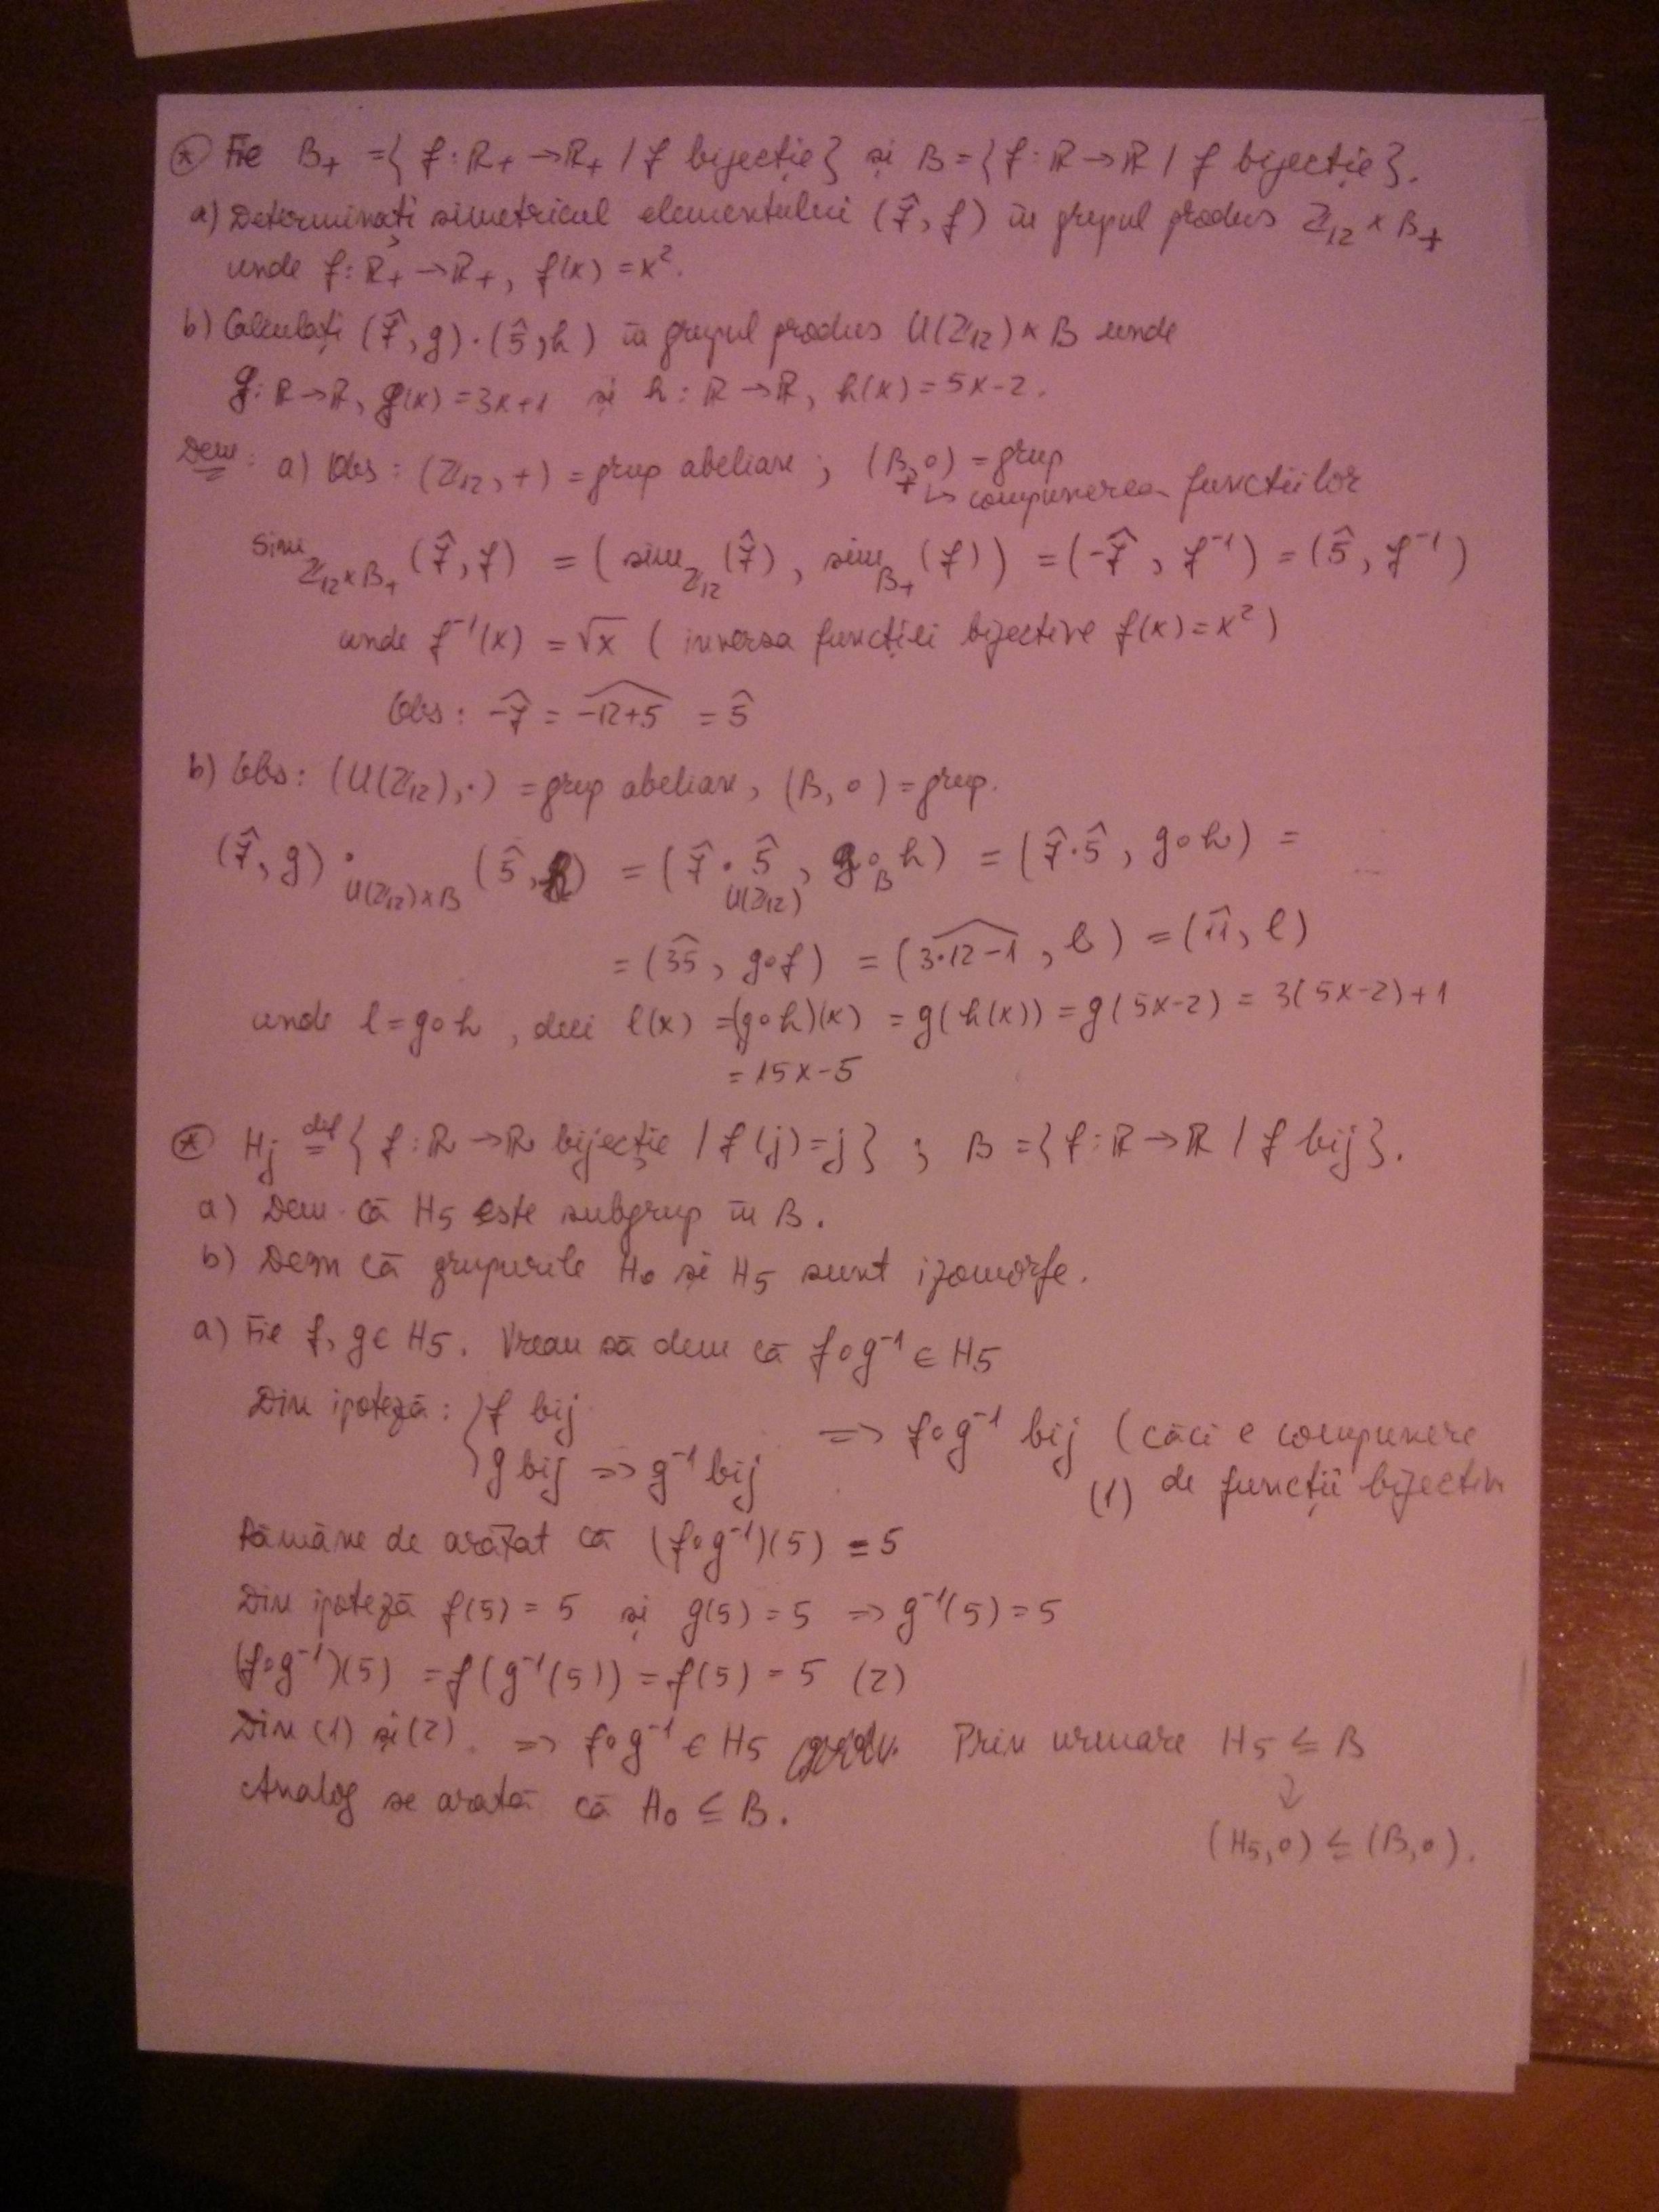 (*) Fie B₊ = { f : R₊ → R₊ / f bijecție } și B = { f : R → R / f bijecție }.
a) Determinați simetricul elementului (7̂, f) în grupul produs Z₁₂ × B₊
unde f : R₊ → R₊, f(x) = x².
b) Calculați (7̂, g) · (5̂, h) în grupul produs U(Z₁₂) × B unde
g : R → R, g(x) = 3x+1 și h : R → R, h(x) = 5x-2.
Dem : a) Obs : (Z₁₂, +) = grup abelian ; (B₊, ∘) = grup
↳ compunerea functiilor
sim_{Z₁₂×B₊} (7̂, f) = ( sim_{Z₁₂} (7̂), sim_{B₊} (f) ) = (-7̂, f⁻¹) = (5̂, f⁻¹)
unde f⁻¹(x) = √x ( inversa funcției bijective f(x) = x² )
Obs : -7̂ = \widehat{-12+5} = 5̂
b) Obs : (U(Z₁₂), ·) = grup abelian, (B, ∘) = grup.
(7̂, g) ·_{U(Z₁₂)×B} (5̂, h) = ( 7̂ ·_{U(Z₁₂)} 5̂, g ∘_B h ) = ( 7̂·5̂, g∘h ) =
= ( \widehat{35}, g∘f ) = ( \widehat{3·12-1}, l ) = ( \widehat{11}, l )
unde l = g∘h, deci l(x) = (g∘h)(x) = g(h(x)) = g(5x-2) = 3(5x-2)+1
= 15x-5
(*) Hj \overset{def}{=} { f : R → R bijecție / f(j) = j } ; B = { f : R → R / f bij }.
a) Dem că H₅ este subgrup în B.
b) Dem că grupurile H₀ și H₅ sunt izomorfe.
a) Fie f, g ∈ H₅. Vreau să dem că f∘g⁻¹ ∈ H₅
Din ipoteză : { f bij
g bij => g⁻¹ bij => f∘g⁻¹ bij (căci e compunere
(1) de funcții bijectiv
Rămâne de arătat că (f∘g⁻¹)(5) = 5
Din ipoteză f(5) = 5 și g(5) = 5 => g⁻¹(5) = 5
(f∘g⁻¹)(5) = f(g⁻¹(5)) = f(5) = 5 (2)
Din (1) și (2) => f∘g⁻¹ ∈ H₅ Prin urmare H₅ ≤ B
Analog se arată că H₀ ≤ B.
↓
(H₅, ∘) ≤ (B, ∘).